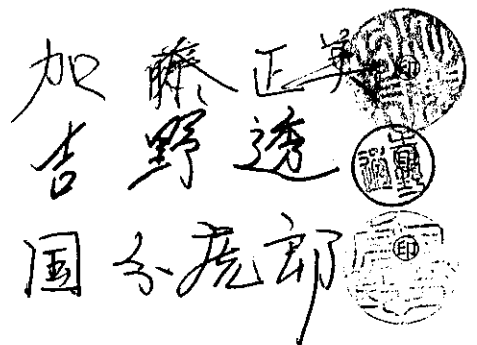 加藤正英 印
吉野透
国分虎郎 印